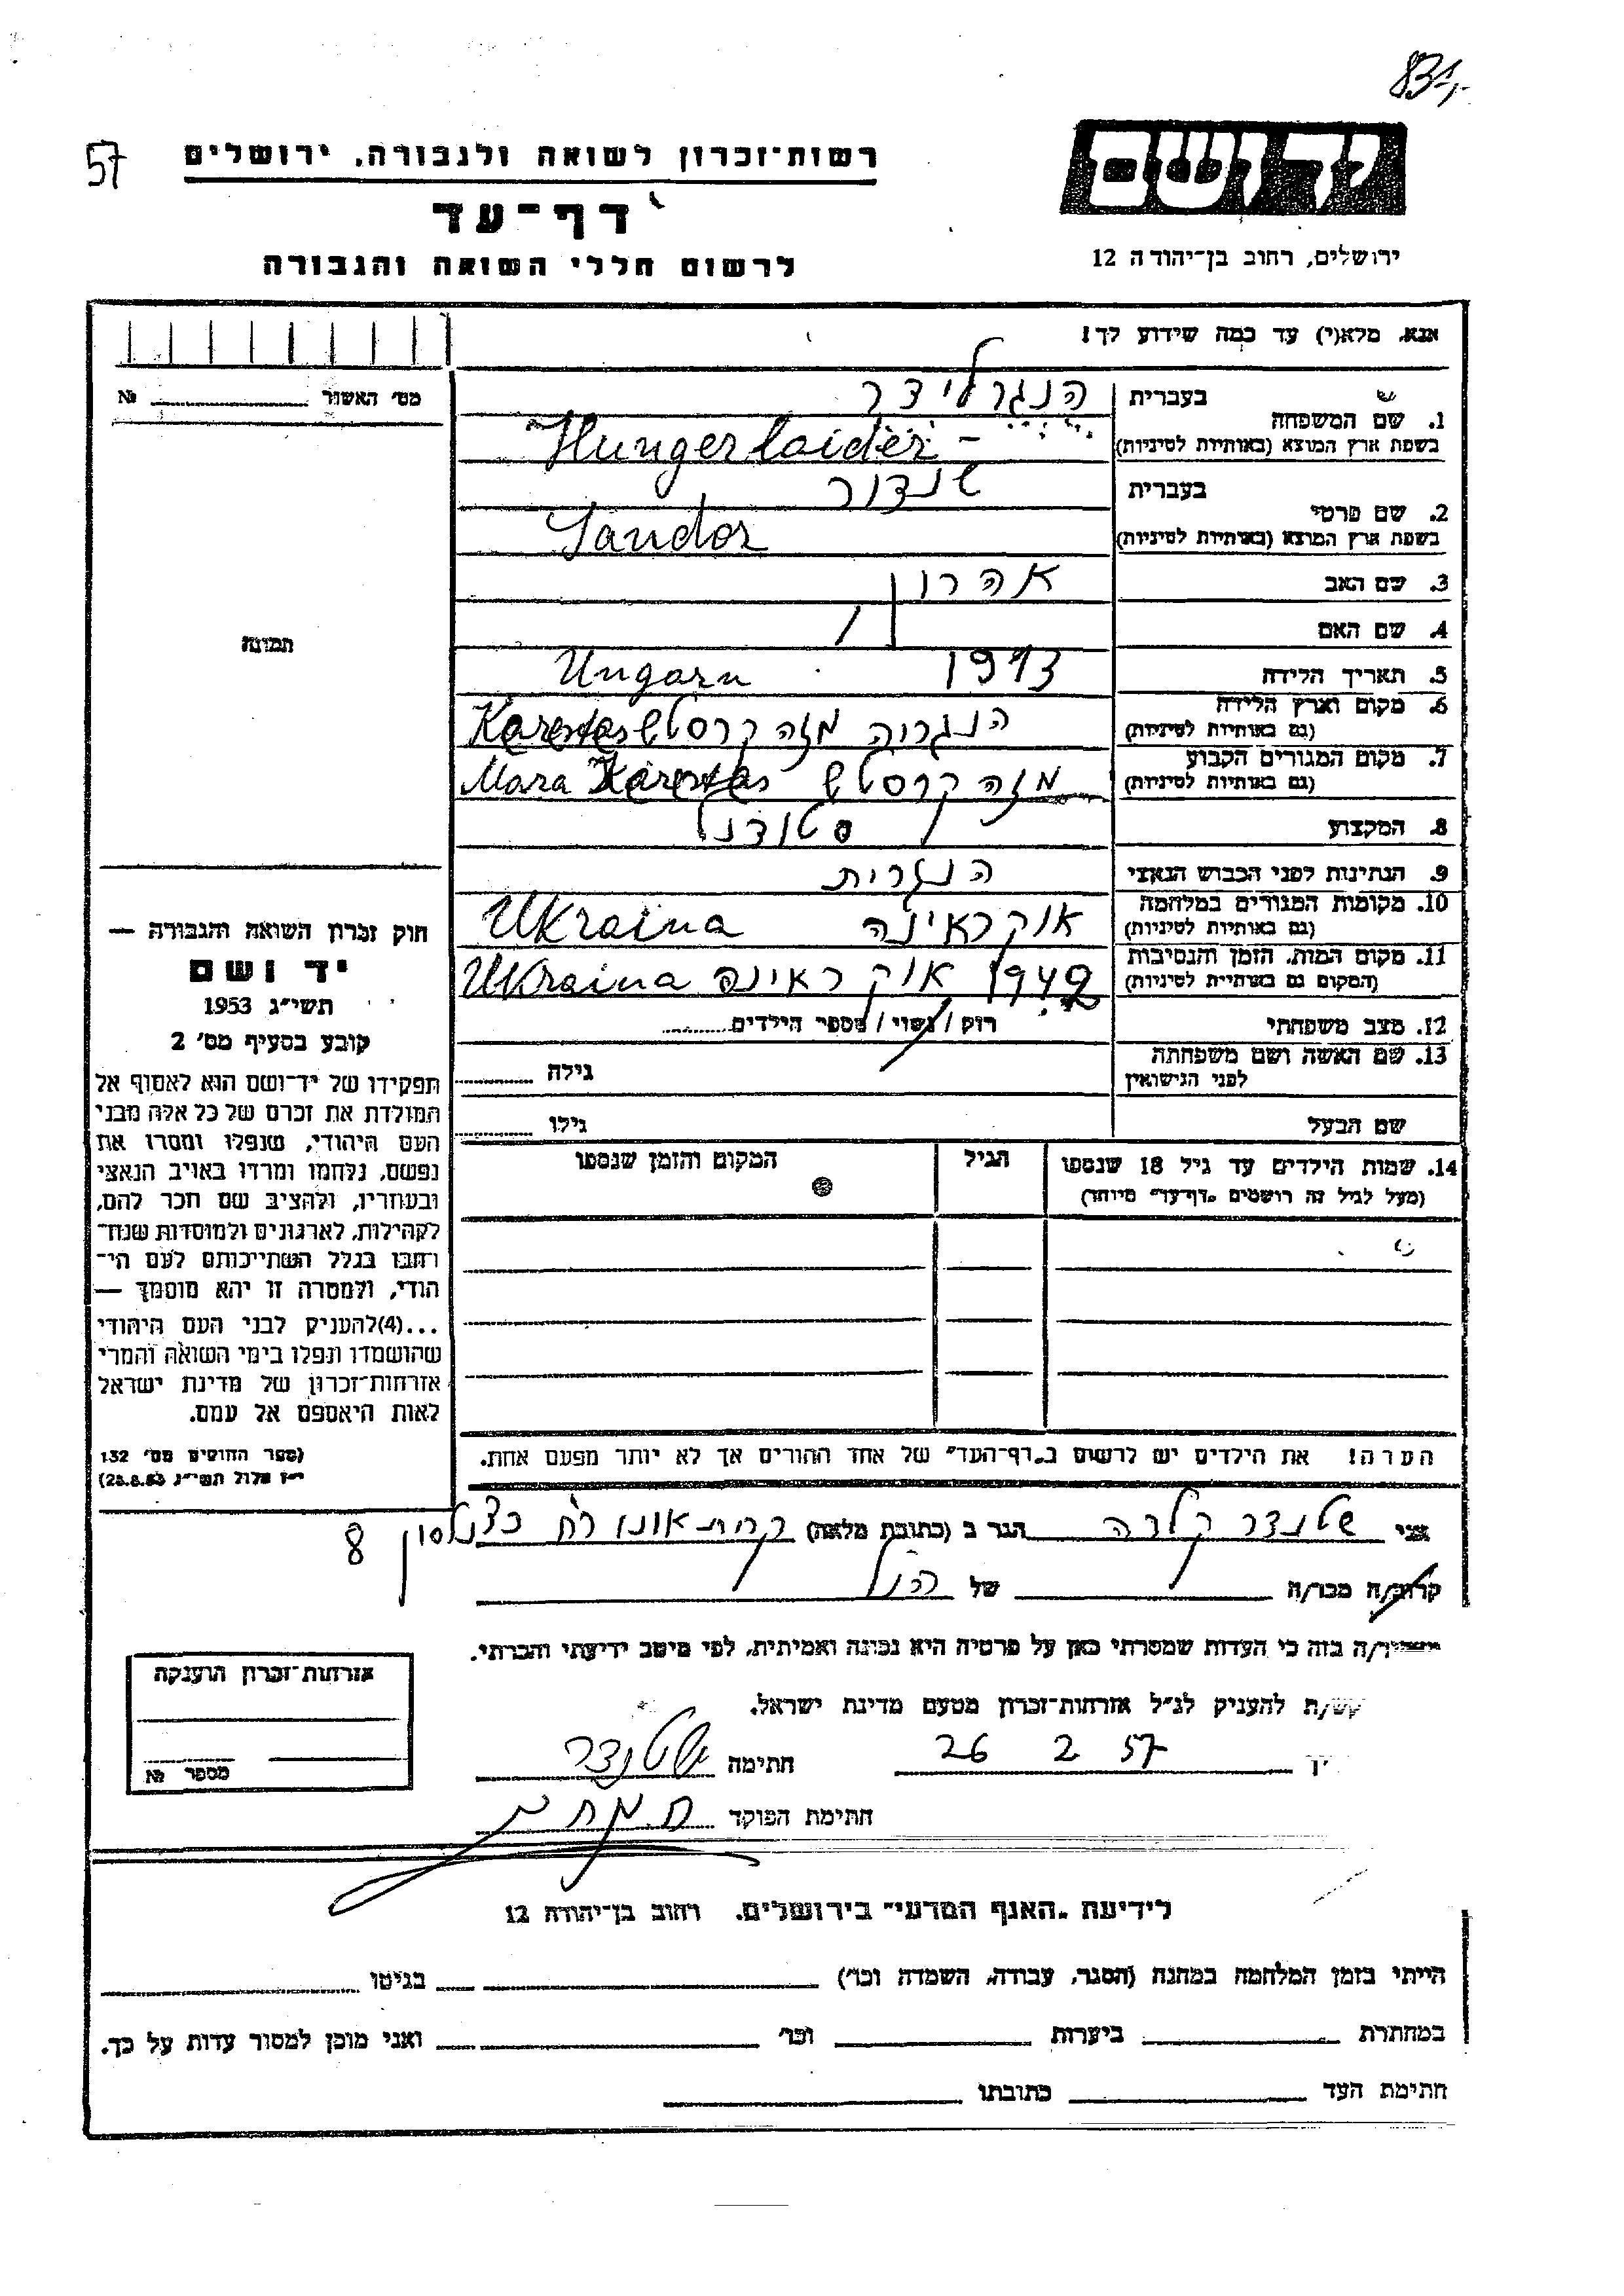 831,-
57
יד ושם
רשות־זכרון לשואה ולגבורה, ירושלים
דף־עד
לרשום חללי השואה והגבורה
ירושלים, רחוב בן־יהודה 12
אנא, מלא(י) עד כמה שידוע לך!
מס' האשור № 
1. שם המשפחה בעברית הנגרליידר
בשפת ארץ המוצא (באותיות לטיניות) Hungerlaider -
2. שם פרטי בעברית שנדור
בשפת ארץ המוצא (באותיות לטיניות) Sandor
3. שם האב אהרון
4. שם האם
תמונה
5. תאריך הלידה 1913 Ungarn
6. מקום וארץ הלידה (גם באותיות לטיניות) הנגריה מזה קרסטש
7. מקום המגורים הקבוע (גם באותיות לטיניות) מזה קרסטש
8. המקצוע סטודנט
9. הנתינות לפני הכבוש הנאצי הנגרית
10. מקומות המגורים במלחמה (גם באותיות לטיניות) אוקראינה Ukraina
11. מקום המות, הזמן והנסיבות (המקום גם באותיות לטיניות) 1942 אוקראינה Ukraina
12. מצב משפחתי רווק / נשוי / מספר הילדים
13. שם האשה ושם משפחתה לפני הנישואין גילה
שם הבעל גילו
14. שמות הילדים עד גיל 18 שנספו הגיל המקום והזמן שנספו
(מעל לגיל זה רושמים "דף־עד" מיוחד)
הערה! את הילדים יש לרשום ב"דף־העד" של אחד ההורים אך לא יותר מפעם אחת.
חוק זכרון השואה והגבורה —
יד ושם
תשי"ג 1953
קובע בסעיף מס' 2
תפקידו של יד־ושם הוא לאסוף אל
המולדת את זכרם של כל אלה מבני
העם היהודי, שנפלו ומסרו את
נפשם, נלחמו ומרדו באויב הנאצי
ובעוזריו, ולהציב שם וזכר להם,
לקהילות, לארגונים ולמוסדות שנח־
רבו בגלל השתייכותם לעם הי־
הודי, ולמטרה זו יהא מוסמך —
...(4)להעניק לבני העם היהודי
שהושמדו ונפלו בימי השואה והמרי
אזרחות־זכרון של מדינת ישראל
לאות היאספם אל עמם.
(ספר החוקים מס' 132
י"ז אלול תשי"ג 28.8.53)
אני שטנדר קלרה הגר ב (כתובת מלאה) קרית אונו רח כצנלסון 8
קרוב/ה מכר/ה של הנ"ל
מצהיר/ה בזה כי העדות שמסרתי כאן על פרטיה היא נכונה ואמיתית, לפי מיטב ידיעתי והכרתי.
מבקש/ת להעניק לנ"ל אזרחות־זכרון מטעם מדינת ישראל.
26 2 57 חתימה שטנדר
חתימת הפוקד
אזרחות־זכרון הוענקה
מספר №
לידיעת "האגף המדעי" בירושלים. רחוב בן־יהודה 12
הייתי בזמן המלחמה במחנה (הסגר, עבודה, השמדה וכו') בגיטו
במחתרת ביערות וכו' ואני מוכן למסור עדות על כך.
חתימת העד כתובתו